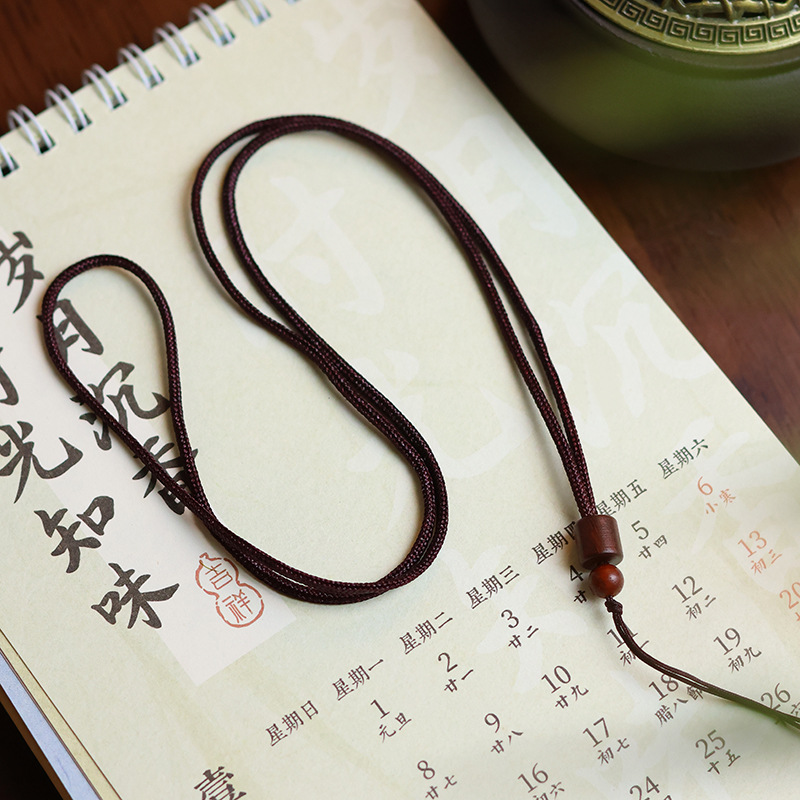 岁月沉香
时光知味
吉祥
壹
星期日 星期一 星期二 星期三 星期四 星期五 星期六
1 2 3 4 5 6
元旦 廿一 廿二 廿四 小寒
8 9 10 11 12 13
廿七 廿八 廿九 初一 初二 初三
16 17 18 19 20
初七 腊八節 初九
24 25 26
十五